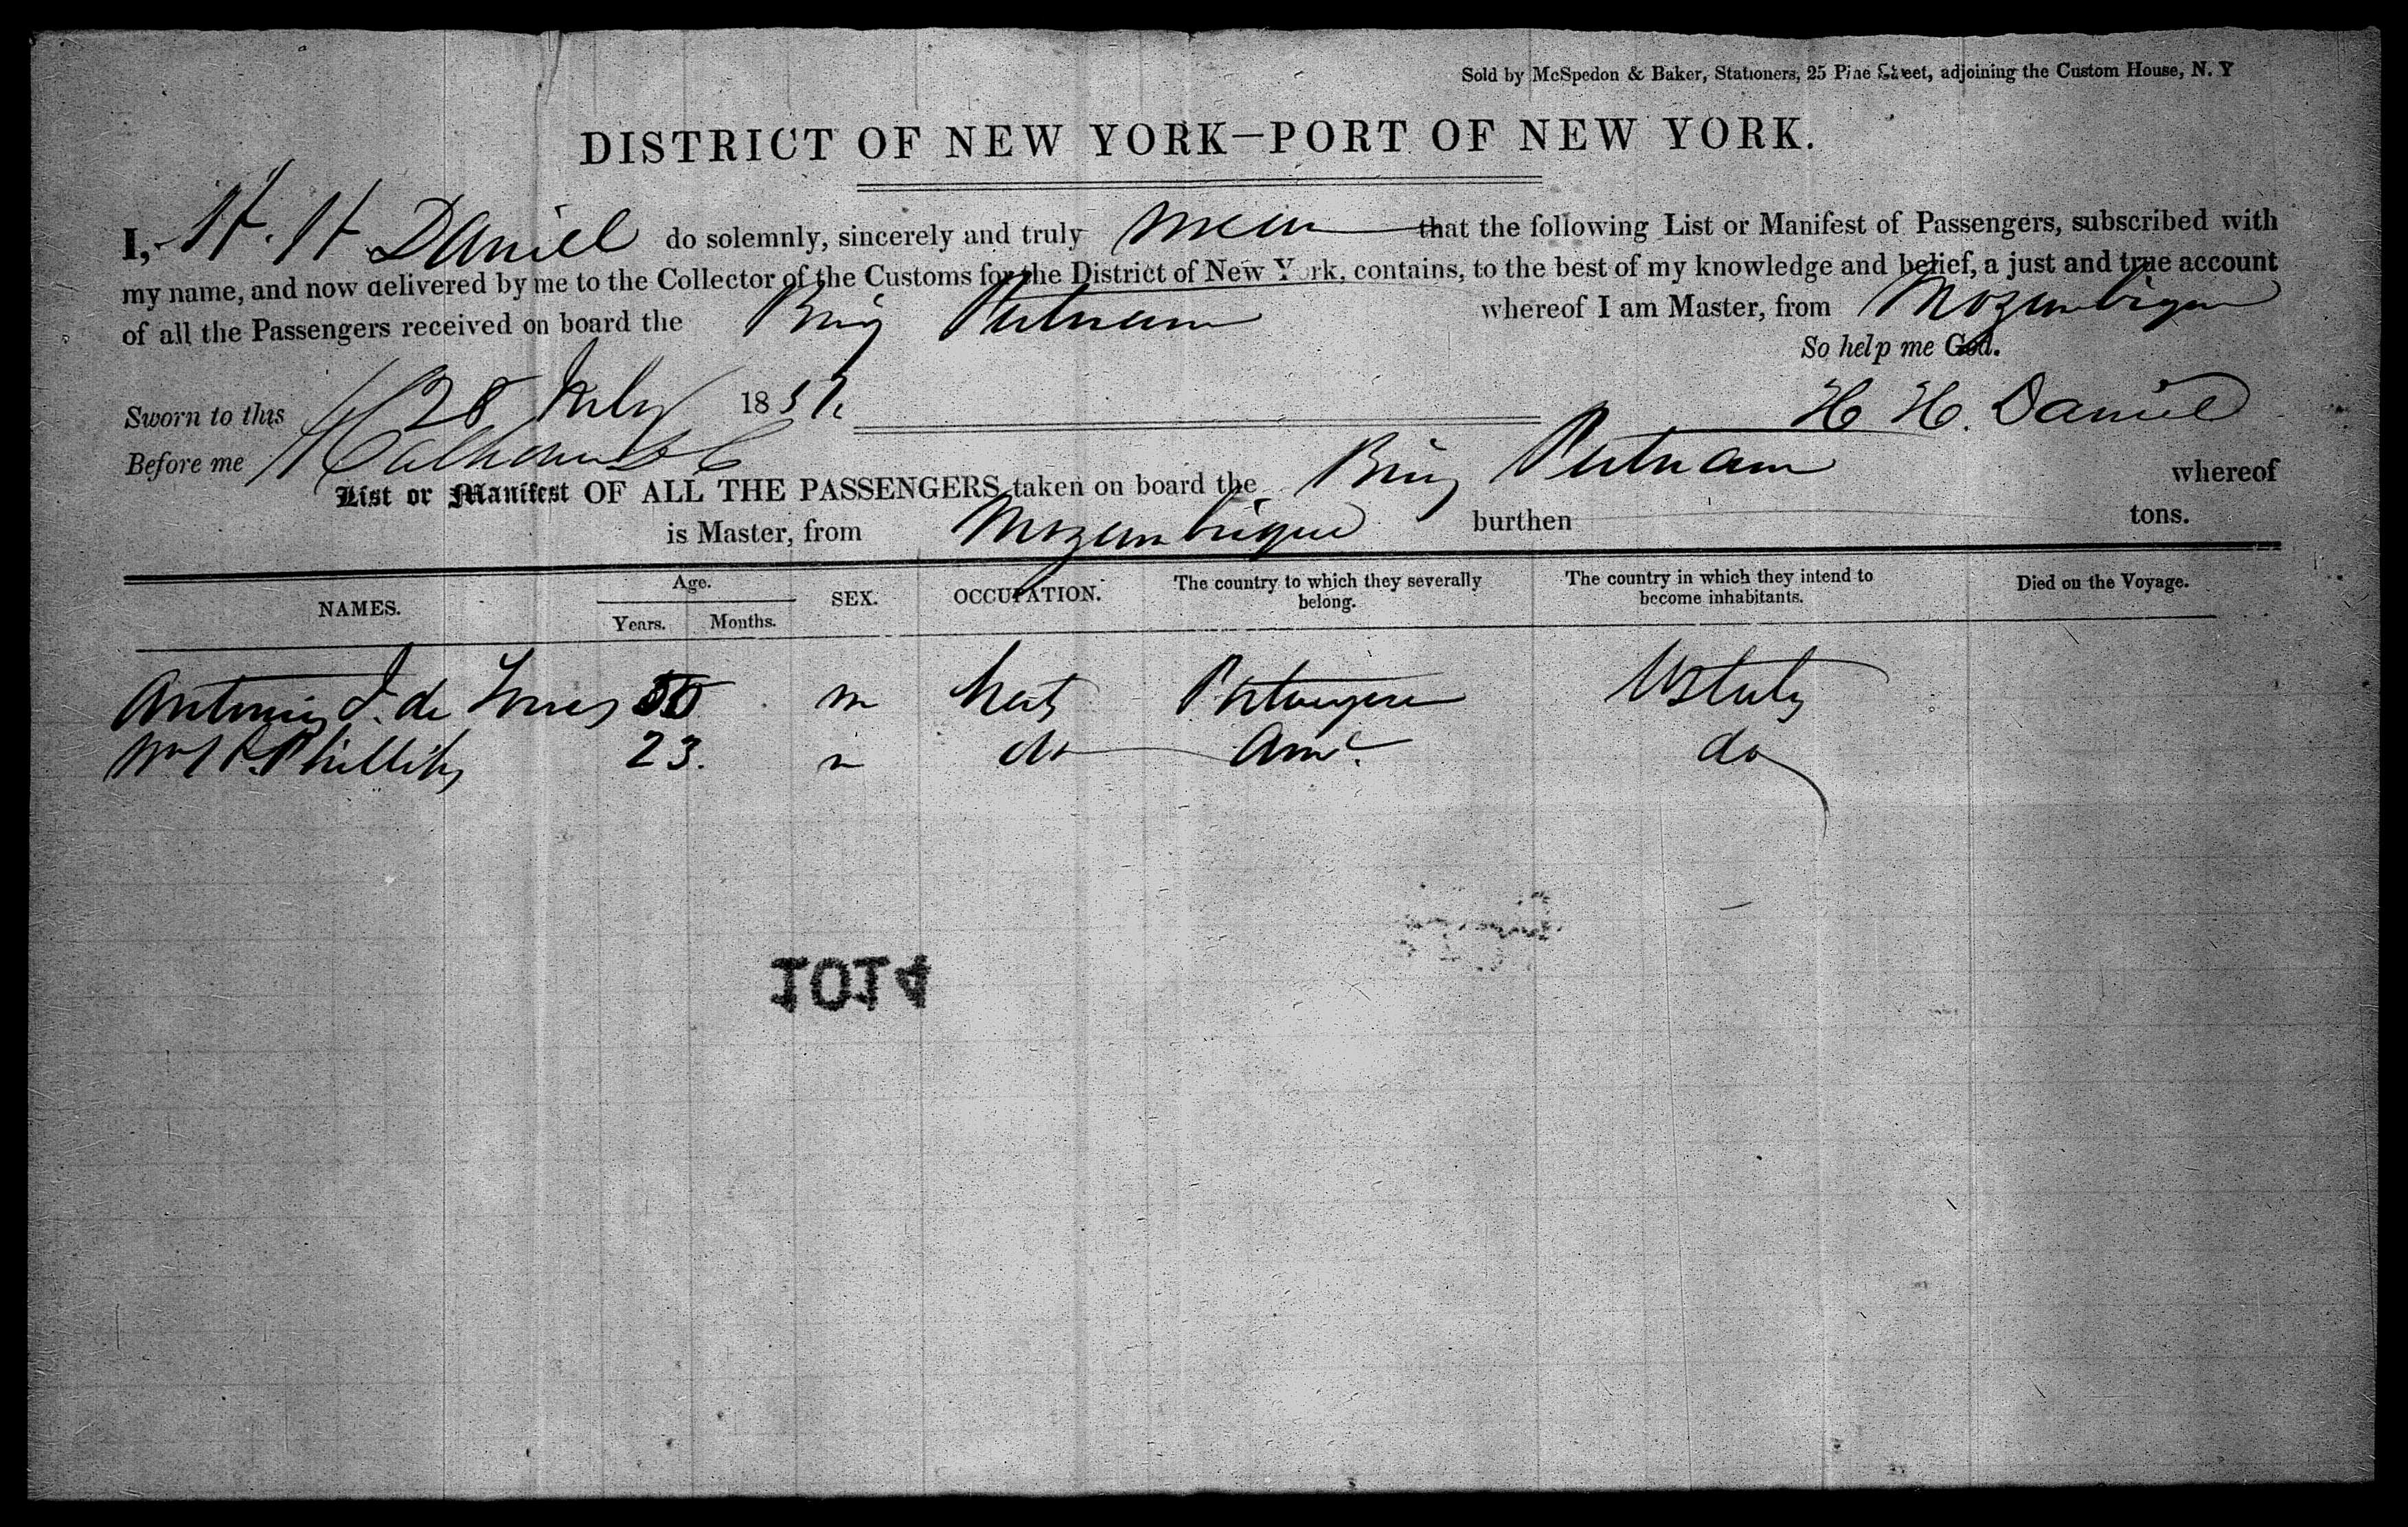 Sold by McSpedon & Baker, Stationers, 25 Pine Street, adjoining the Custom House, N. Y
DISTRICT OF NEW YORK—PORT OF NEW YORK.
I, H. H. Daniel do solemnly, sincerely and truly swear that the following List or Manifest of Passengers, subscribed with
my name, and now delivered by me to the Collector of the Customs for the District of New York, contains, to the best of my knowledge and belief, a just and true account
of all the Passengers received on board the Brig Putnam whereof I am Master, from Mozambique
So help me God.
Sworn to this 28 July 185
H H. Daniel
Before me
List or Manifest OF ALL THE PASSENGERS taken on board the Brig Putnam whereof
is Master, from Mozambique burthen tons.
NAMES. Age. Years. Months. SEX. OCCUPATION. The country to which they severally belong. The country in which they intend to become inhabitants. Died on the Voyage.
Antonio J. de 50 m Portuguese U States
Wm Phillips 23. m do Amc. do
1014